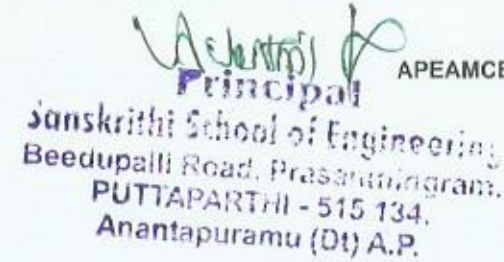 APEAMCE
Principal
Sanskrithi School of Engineering
Beedupalli Road, Prasanthinigram.
PUTTAPARTHI - 515 134.
Anantapuramu (Dt) A.P.